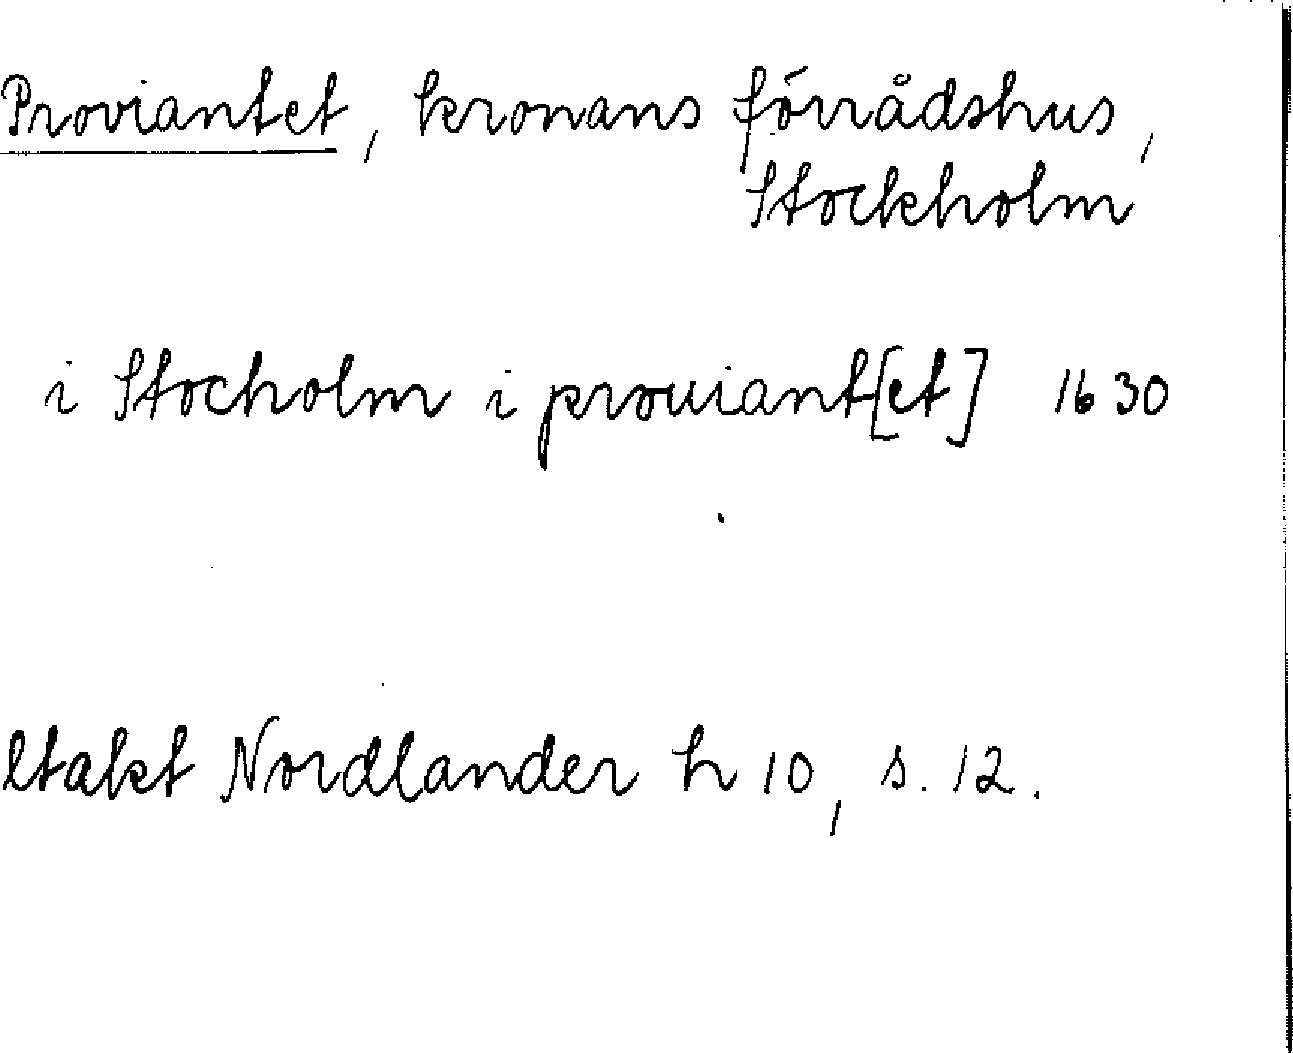 Proviantet, kronans förrådshus,
Stockholm
i Stocholm i prouiant[et] 1630
Nordlander h 10, s. 12.